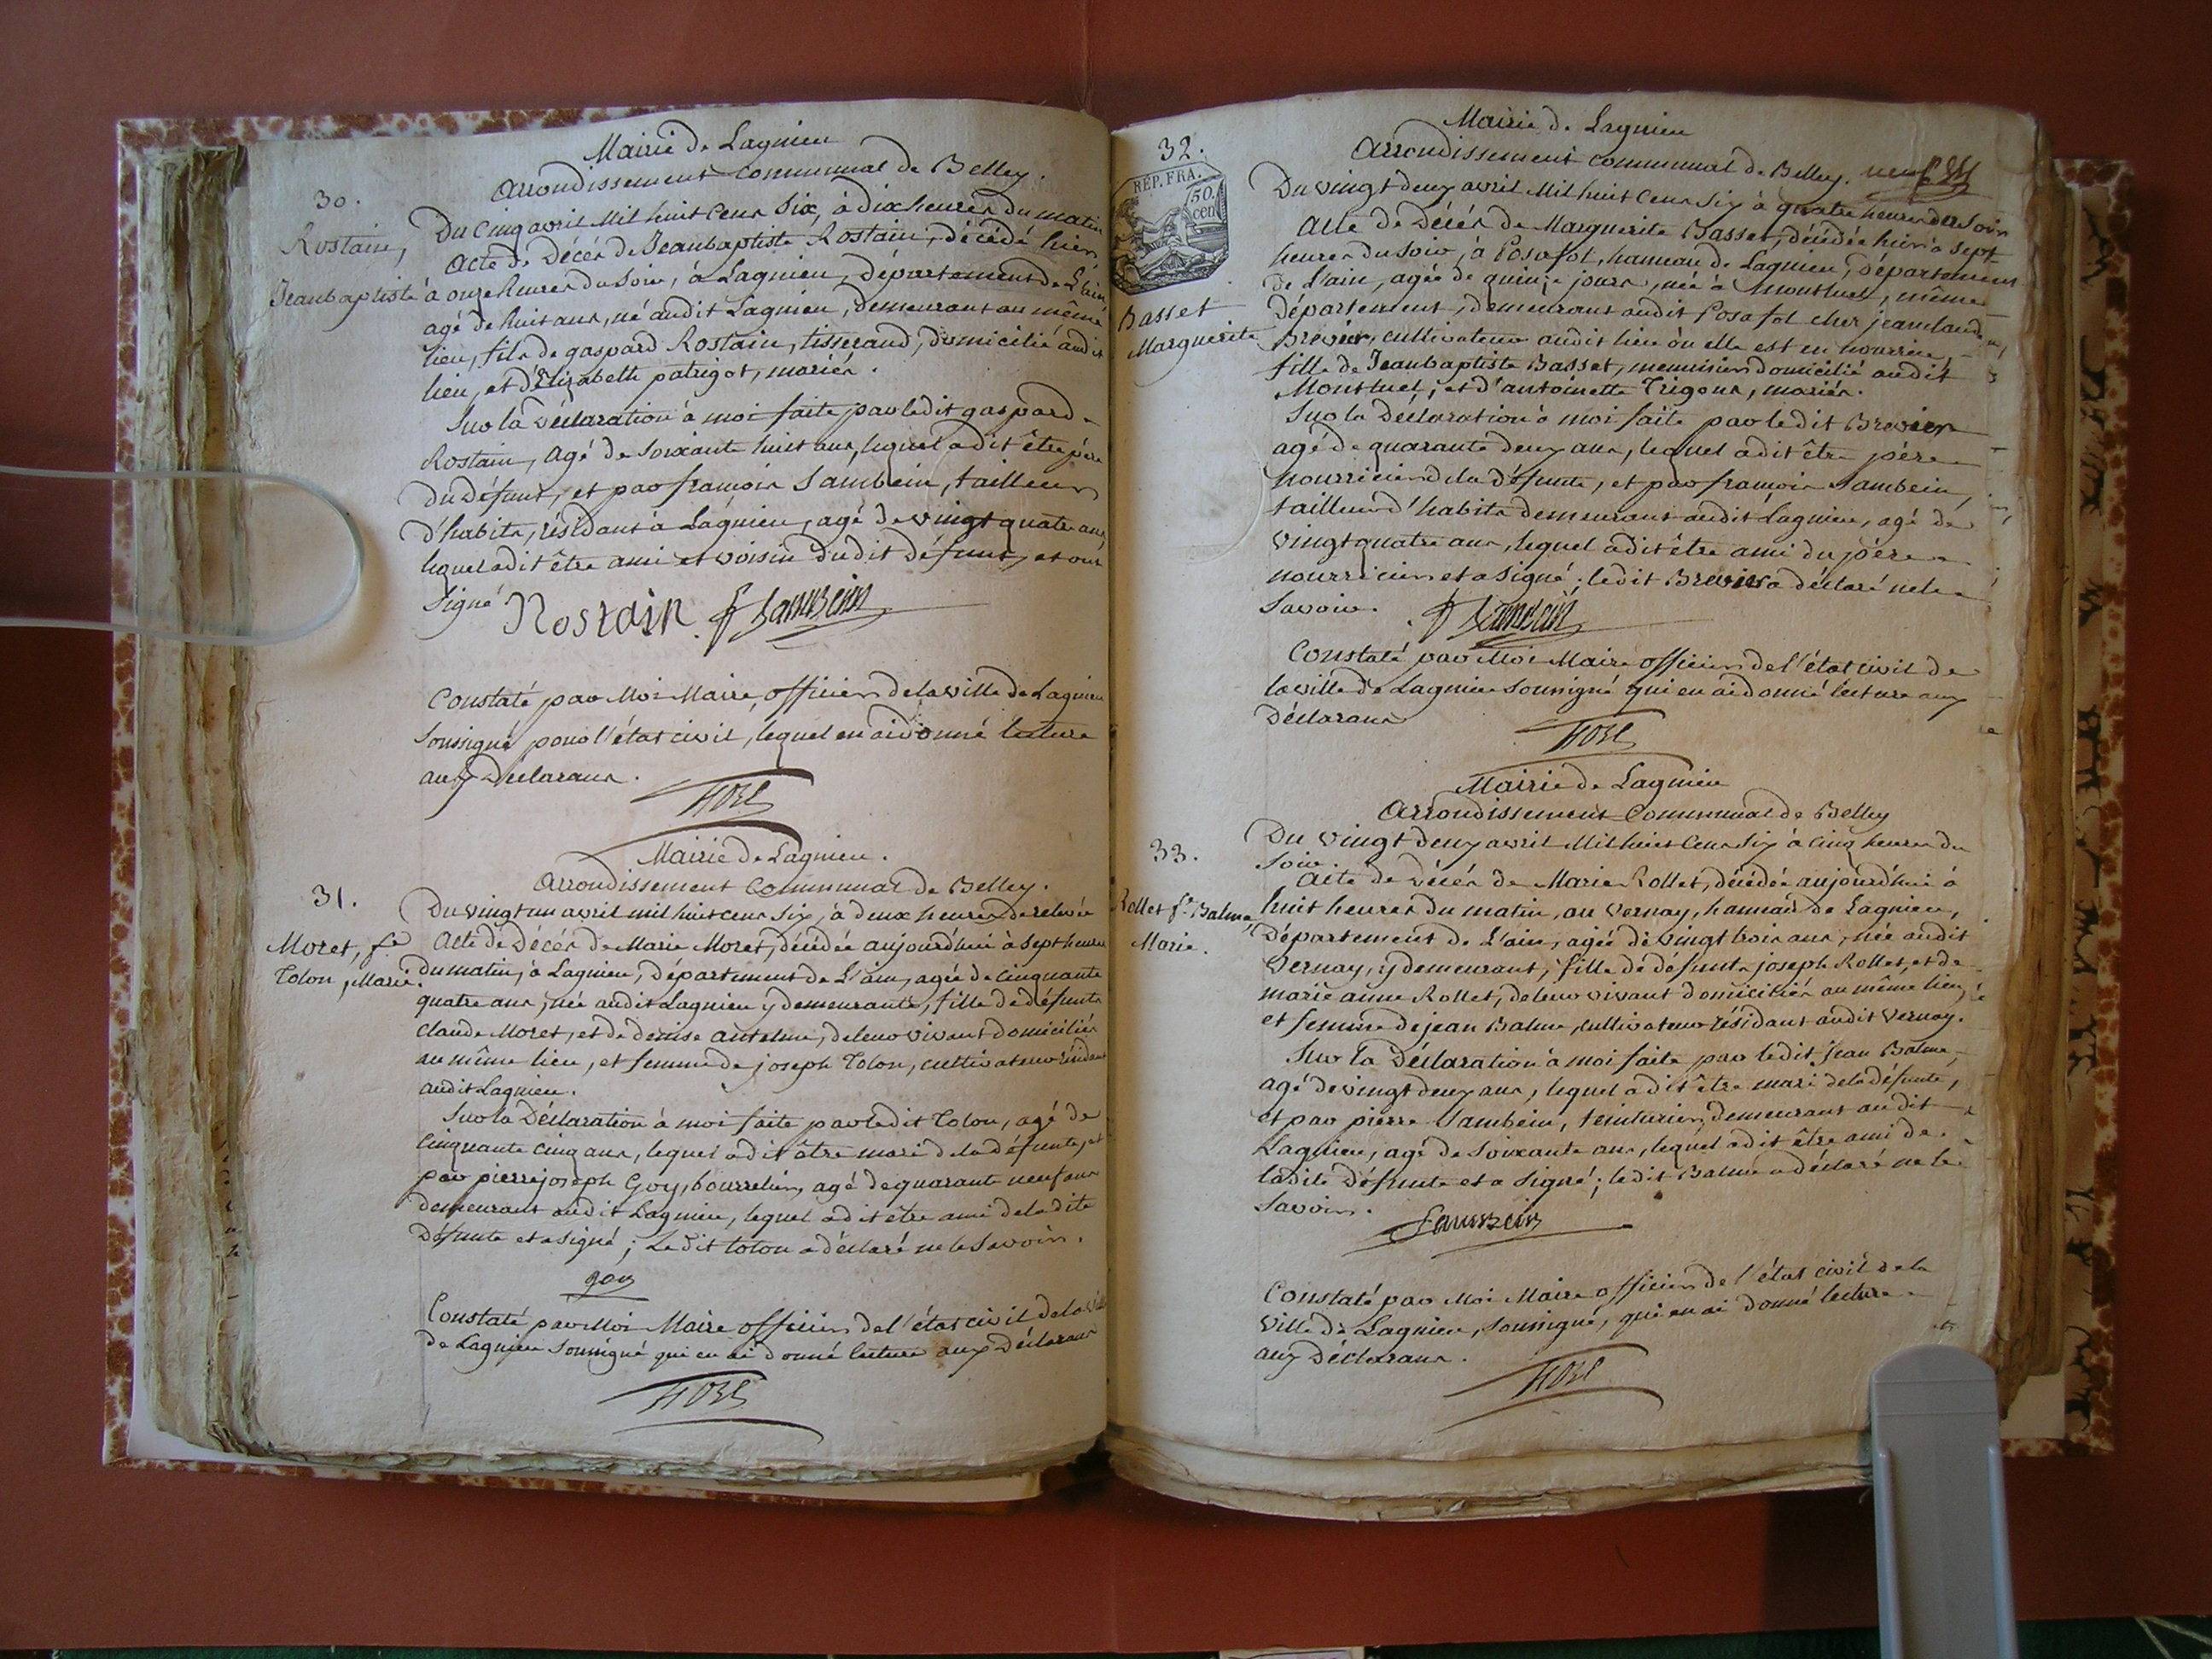 Mairie de Lagnieu
Arrondissement communal de Belley.
30.
Rostain,
Jeanbaptiste
Du cinq avril mil huit cent six, à dix heures du matin
Acte de Décès de Jeanbaptiste Rostain, décédé hier
à onze heures du soir, à Lagnieu, Département de L'ain
agé de huit ans, né audit Lagnieu, demeurant au même
lieu, fils de gaspard Rostain, tisserand, domicilié audit
lieu, et d'Elizabeth patrigot, mariés.
Sur la déclaration à moi faite par ledit gaspard
Rostain, agé de soixante huit ans, lequel a dit être père
du défunt, et par françois Sambein, tailleur
d'habits, résidant à Lagnieu, agé de vingt quatre ans,
lequel a dit être ami et voisin dudit défunt, et ont
signé Rostain f Sambein
Constaté par Moi Maire, officier de la ville de Lagnieu
soussigné pour l'état civil, lequel en ai donné lecture
aux Déclarans.
Mairie de Lagnieu.
Arrondissement Communal de Belley.
31.
Moret, fe
Tolon, Marie.
Du vingt un avril mil huit cent six, à deux heures de relevée
Acte de Décès de Marie Moret, décédée aujourd'hui à sept heures
du matin, à Lagnieu, Département de L'ain, agée de cinquante
quatre ans, née audit Lagnieu y demeurante, fille de défunts
Claude Moret, et de denise antelme, de leur vivant domiciliés
au même lieu, et femme de joseph Tolon, cultivateur résidant
audit Lagnieu.
Sur la Déclaration à moi faite par ledit Tolon, agé de
cinquante cinq ans, lequel a dit être mari de la défunte, et
par pierre joseph Goy, bourrelier, agé de quarante neuf ans
demeurant audit Lagnieu, lequel a dit être ami de la dite
Défunte et a signé; Le dit tolon a déclaré ne le savoir.
goy
Constaté par Moi Maire officier de l'état civil de la ville
de Lagnieu soussigné qui en ai donné lecture aux Déclarans
Mairie de Lagnieu
Arrondissement communal de Belley. neuf
32.
RÉP. FRA.
50.
cen
Basset
Marguerite
Du vingt deux avril Mil huit cent six à quatre heures du soir
Acte de Décès de Marguerite Basset, décédée hier à sept
heures du soir, à Posafol, hameau de Lagnieu, Département
de L'ain, agée de quinze jours, née à Montluel, même
département, demeurant audit Posafol chez jean claude
Brevier, cultivateur audit lieu où elle est en nourrice,
fille de Jeanbaptiste Basset, menuisier domicilié audit
Montluel, et d'antoinette Trigour, mariés.
Sur la Déclaration à moi faite par ledit Brevier
agé de quarante deux ans, lequel a dit être père
nourricier de la défunte, et par françois Sambein,
tailleur d'habits demeurant audit Lagnieu, agé de
vingt quatre ans, lequel a dit être ami du père
nourricier et a signé; ledit Brevier a déclaré ne le
savoir. f Sambein
Constaté par Moi Maire officier de l'état civil de
la ville de Lagnieu soussigné qui en ai donné lecture aux
Déclarans
Mairie de Lagnieu
Arrondissement Communal de Belley
33.
Rollet fe Balme,
Marie.
Du vingt deux avril Mil huit cent six à cinq heures du
soir.
Acte de Décès de Marie Rollet, décédée aujourd'hui à
huit heures du matin, au Vernay, hameau de Lagnieu,
Département de L'ain, agée de vingt trois ans, née audit
Vernay, y demeurant, fille de défunts joseph Rollet, et de
marie anne Rollet, de leur vivant domiciliés au même lieu,
et femme de jean Balme, cultivateur résidant audit Vernay.
Sur la Déclaration à moi faite par ledit jean Balme,
agé de vingt deux ans, lequel a dit être mari de la défunte,
et par pierre Sambein, teinturier, demeurant audit
Lagnieu, agé de soixante ans, lequel a dit être ami de
ladite Défunte et a signé; ledit Balme a déclaré ne le
savoir.
Sambein
Constaté par Moi Maire officier de l'état civil de la
ville de Lagnieu, soussigné, qui en ai donné lecture
aux Déclarans.